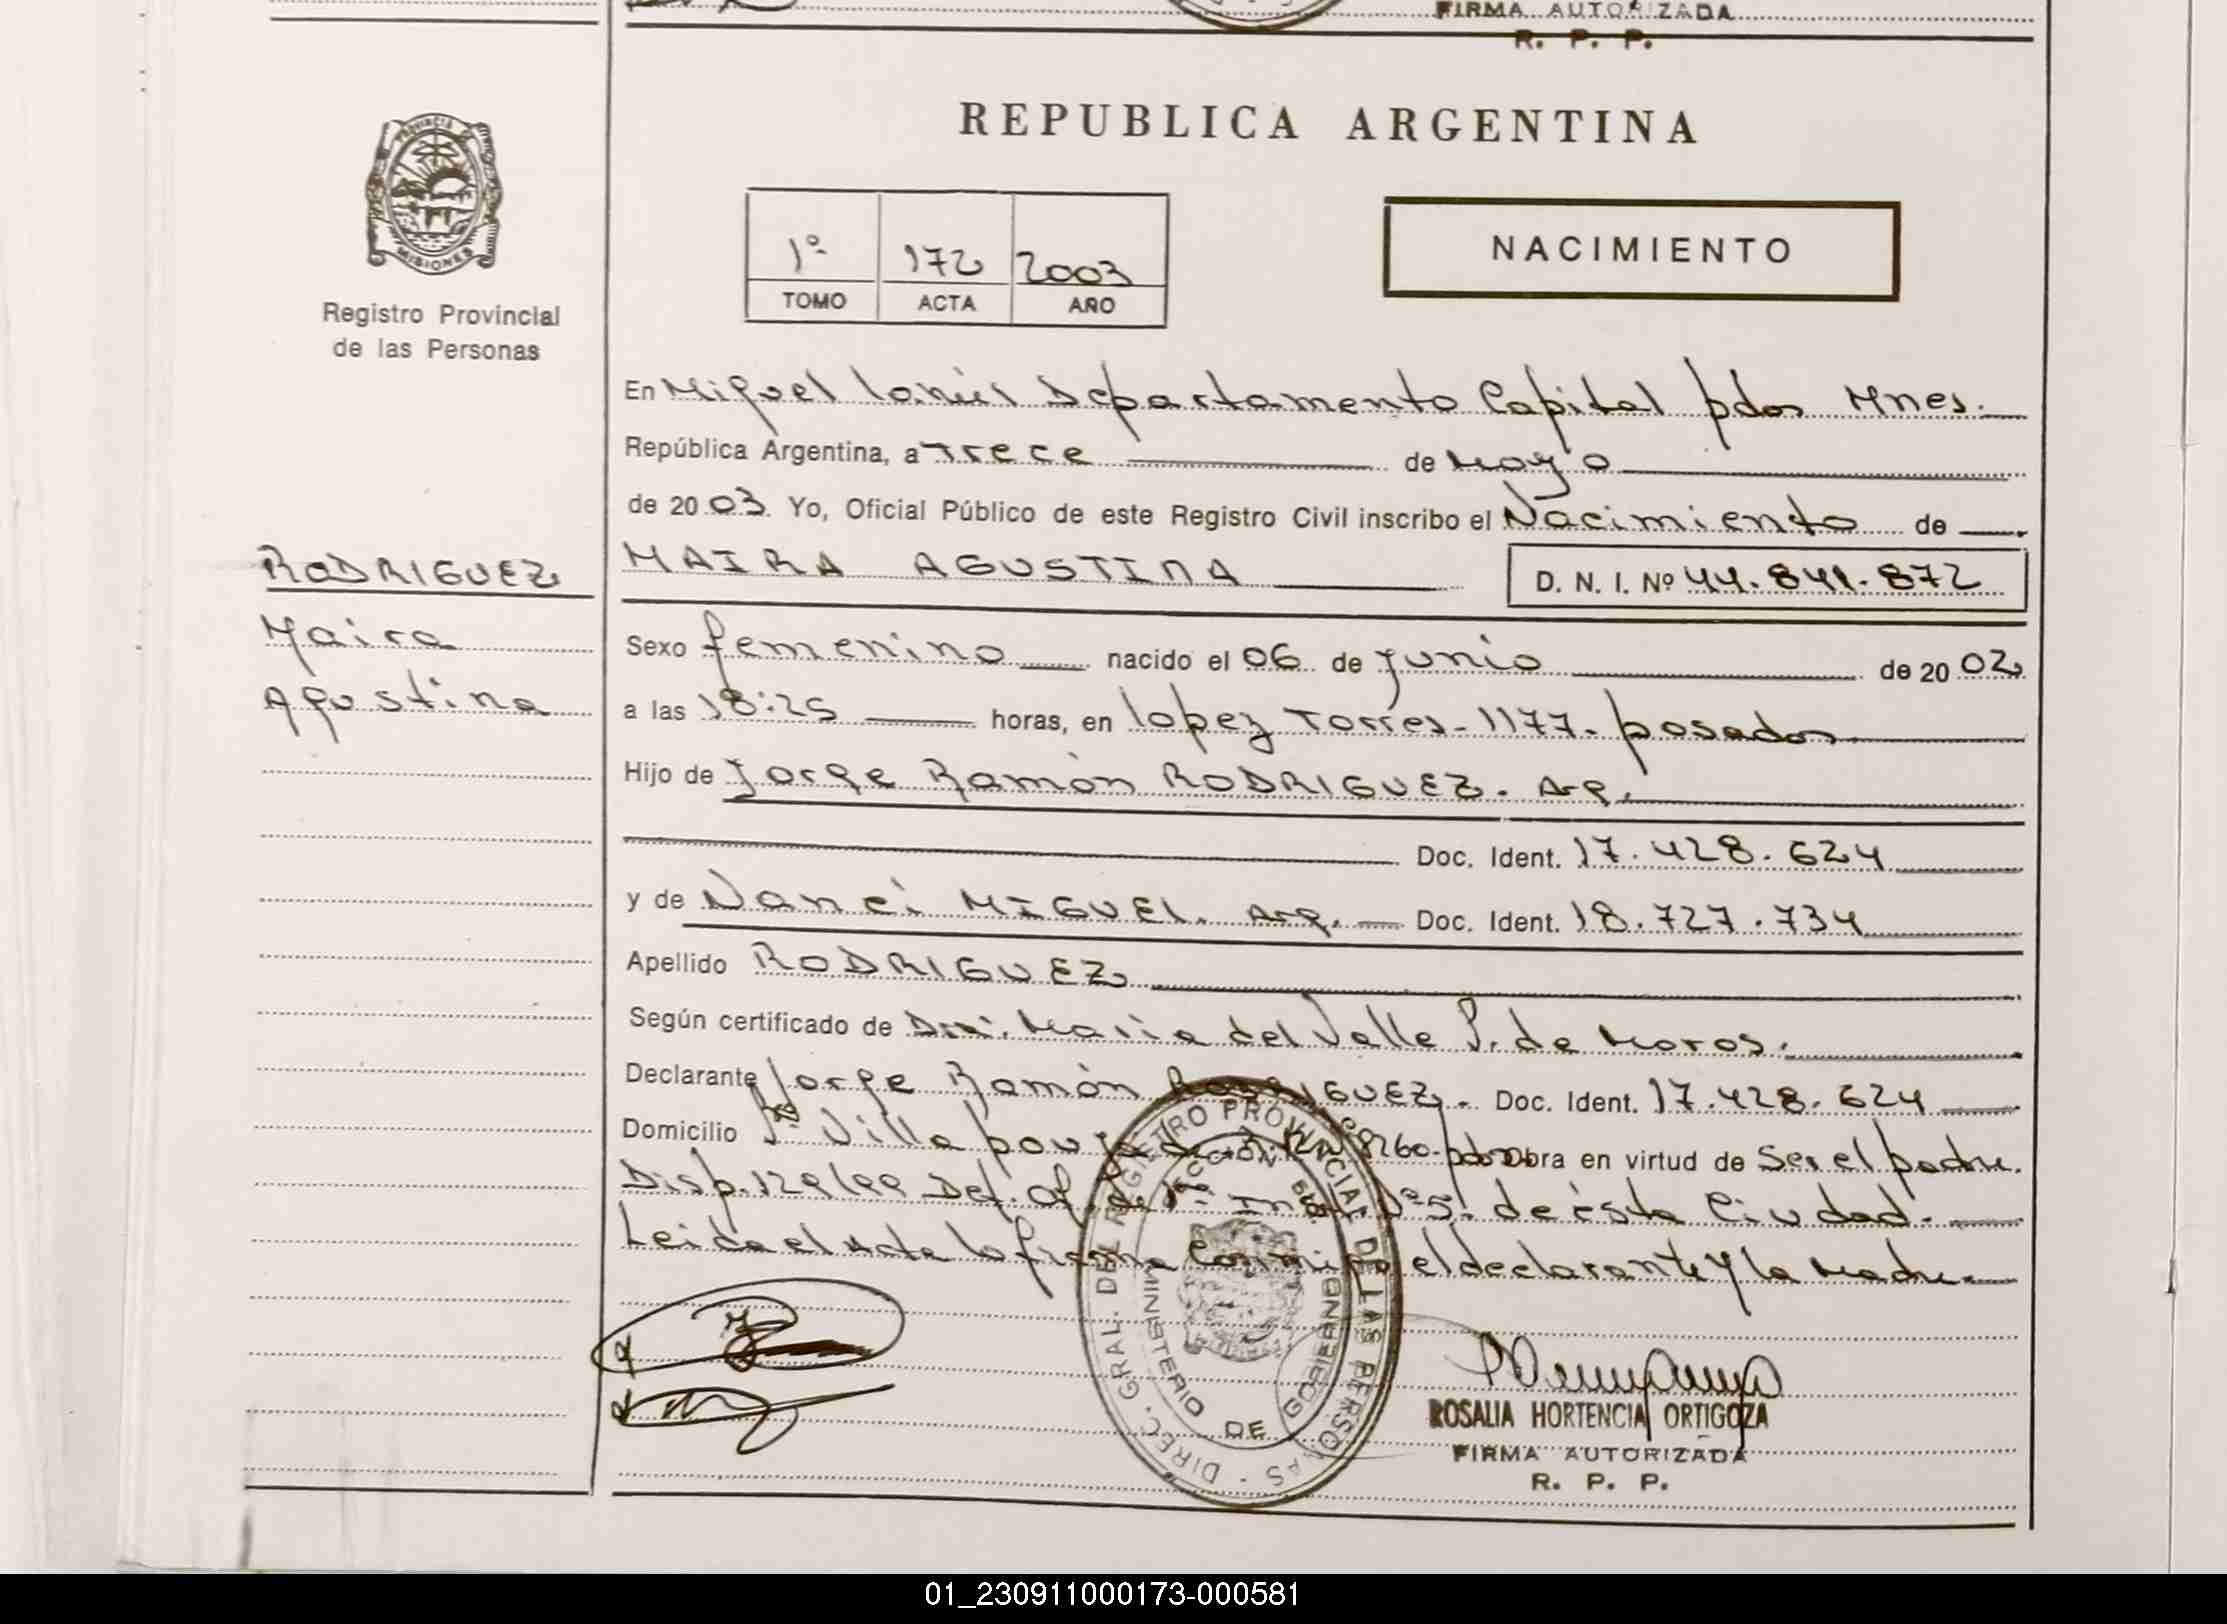 FIRMA AUTORIZADA
R. P. P.
PROVINCIA DE
MISIONES
Registro Provincial
de las Personas
REPUBLICA ARGENTINA
1º 172 2003
TOMO ACTA AÑO
NACIMIENTO
En Miguel Lanús Departamento Capital pdas Mnes.
República Argentina, a Trece de Mayo
de 2003 Yo, Oficial Público de este Registro Civil inscribo el Nacimiento de
RODRIGUEZ
Maira
Agustina
MAIRA AGUSTINA D. N. I. Nº 44.841.872
Sexo femenino nacido el 06 de Junio de 2002
a las 18:25 horas, en Lopez Torres - 1177 - posadas
Hijo de Jorge Ramón RODRIGUEZ. Arg.
Doc. Ident. 17.428.624
y de Nanci MIGUEL. Arg. Doc. Ident. 18.727.734
Apellido RODRIGUEZ
Según certificado de Dra. Maria del Valle P. de Moros.
Declarante Jorge Ramón RODRIGUEZ. Doc. Ident. 17.428.624
Domicilio Villa 8260 - pdas Obra en virtud de Ser el padre.
Disp. 129/99 Def. Of. de 1ra. Inst. Nº5. de ésta Ciudad.
Leida el Acta la firma Conmigo el declarante y la Madre
DIREC. GRAL. DEL REGISTRO PROVINCIAL DE LAS PERSONAS
MINISTERIO DE GOBIERNO
ROSALIA HORTENCIA ORTIGOZA
FIRMA AUTORIZADA
R. P. P.
01_230911000173-000581